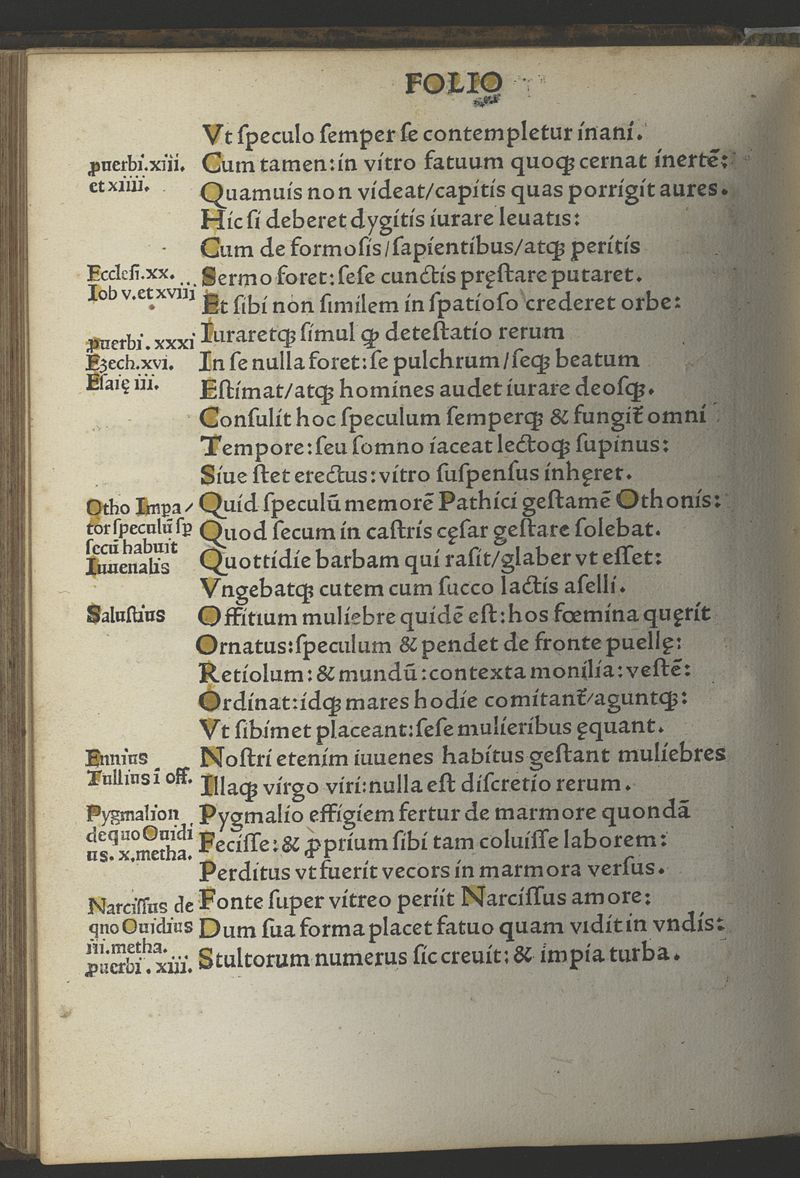 FOLIO
Vt ſpeculo ſemper ſe contempletur inani.
ꝓuerbi.xiii.
et xiiii.
Cum tamen:in vitro fatuum quoqꝫ cernat inertē:
Quamuis non videat/capitis quas porrigit aures.
Hic ſi deberet dygitis iurare leuatis:
Cum de formoſis/ſapientibus/atqꝫ peritis
Eccleſi.xx.
Iob v.et xviii
Sermo foret:ſeſe cunctis pręſtare putaret.
Et ſibi non ſimilem in ſpatioſo crederet orbe:
ꝓuerbi.xxxi
Ezech.xvi.
Eſaię iii.
Iuraretqꝫ ſimul ꝙ deteſtatio rerum
In ſe nulla foret:ſe pulchrum/ſeqꝫ beatum
Eſtimat/atqꝫ homines audet iurare deoſqꝫ.
Conſulit hoc ſpeculum ſemperqꝫ & fungit᷑ omni
Tempore:ſeu ſomno iaceat lectoqꝫ ſupinus:
Siue ſtet erectus:vitro ſuſpenſus inhęret.
Otho Impa/
tor ſpeculū ſp
ſecū habuit
Iuuenalis
Quid ſpeculū memorē Pathici geſtamē Othonis:
Quod ſecum in caſtris cęſar geſtare ſolebat.
Quottidie barbam qui raſit/glaber vt eſſet:
Vngebatqꝫ cutem cum ſucco lactis aſelli.
Saluſtius
Offitium muliebre quidē eſt:hos fœmina quęrit
Ornatus:ſpeculum & pendet de fronte puellę:
Retiolum:& mundū:contexta monilia:veſtē:
Ordinat:idqꝫ mares hodie comitant᷑/aguntqꝫ:
Vt ſibimet placeant:ſeſe mulieribus ęquant.
Ennius
Tullius i off.
Noſtri etenim iuuenes habitus geſtant muliebres
Illaqꝫ virgo viri:nulla eſt diſcretio rerum.
Pygmalion
de quo Ouidi
us.x.metha.
Pygmalio effigiem fertur de marmore quondā
Feciſſe:& ꝓprium ſibi tam coluiſſe laborem:
Perditus vt fuerit vecors in marmora verſus.
Narciſſus de
quo Ouidius
iii.metha.
ꝓuerbi.xiii.
Fonte ſuper vitreo periit Narciſſus amore:
Dum ſua forma placet fatuo quam vidit in vndis:
Stultorum numerus ſic creuit:& impia turba.